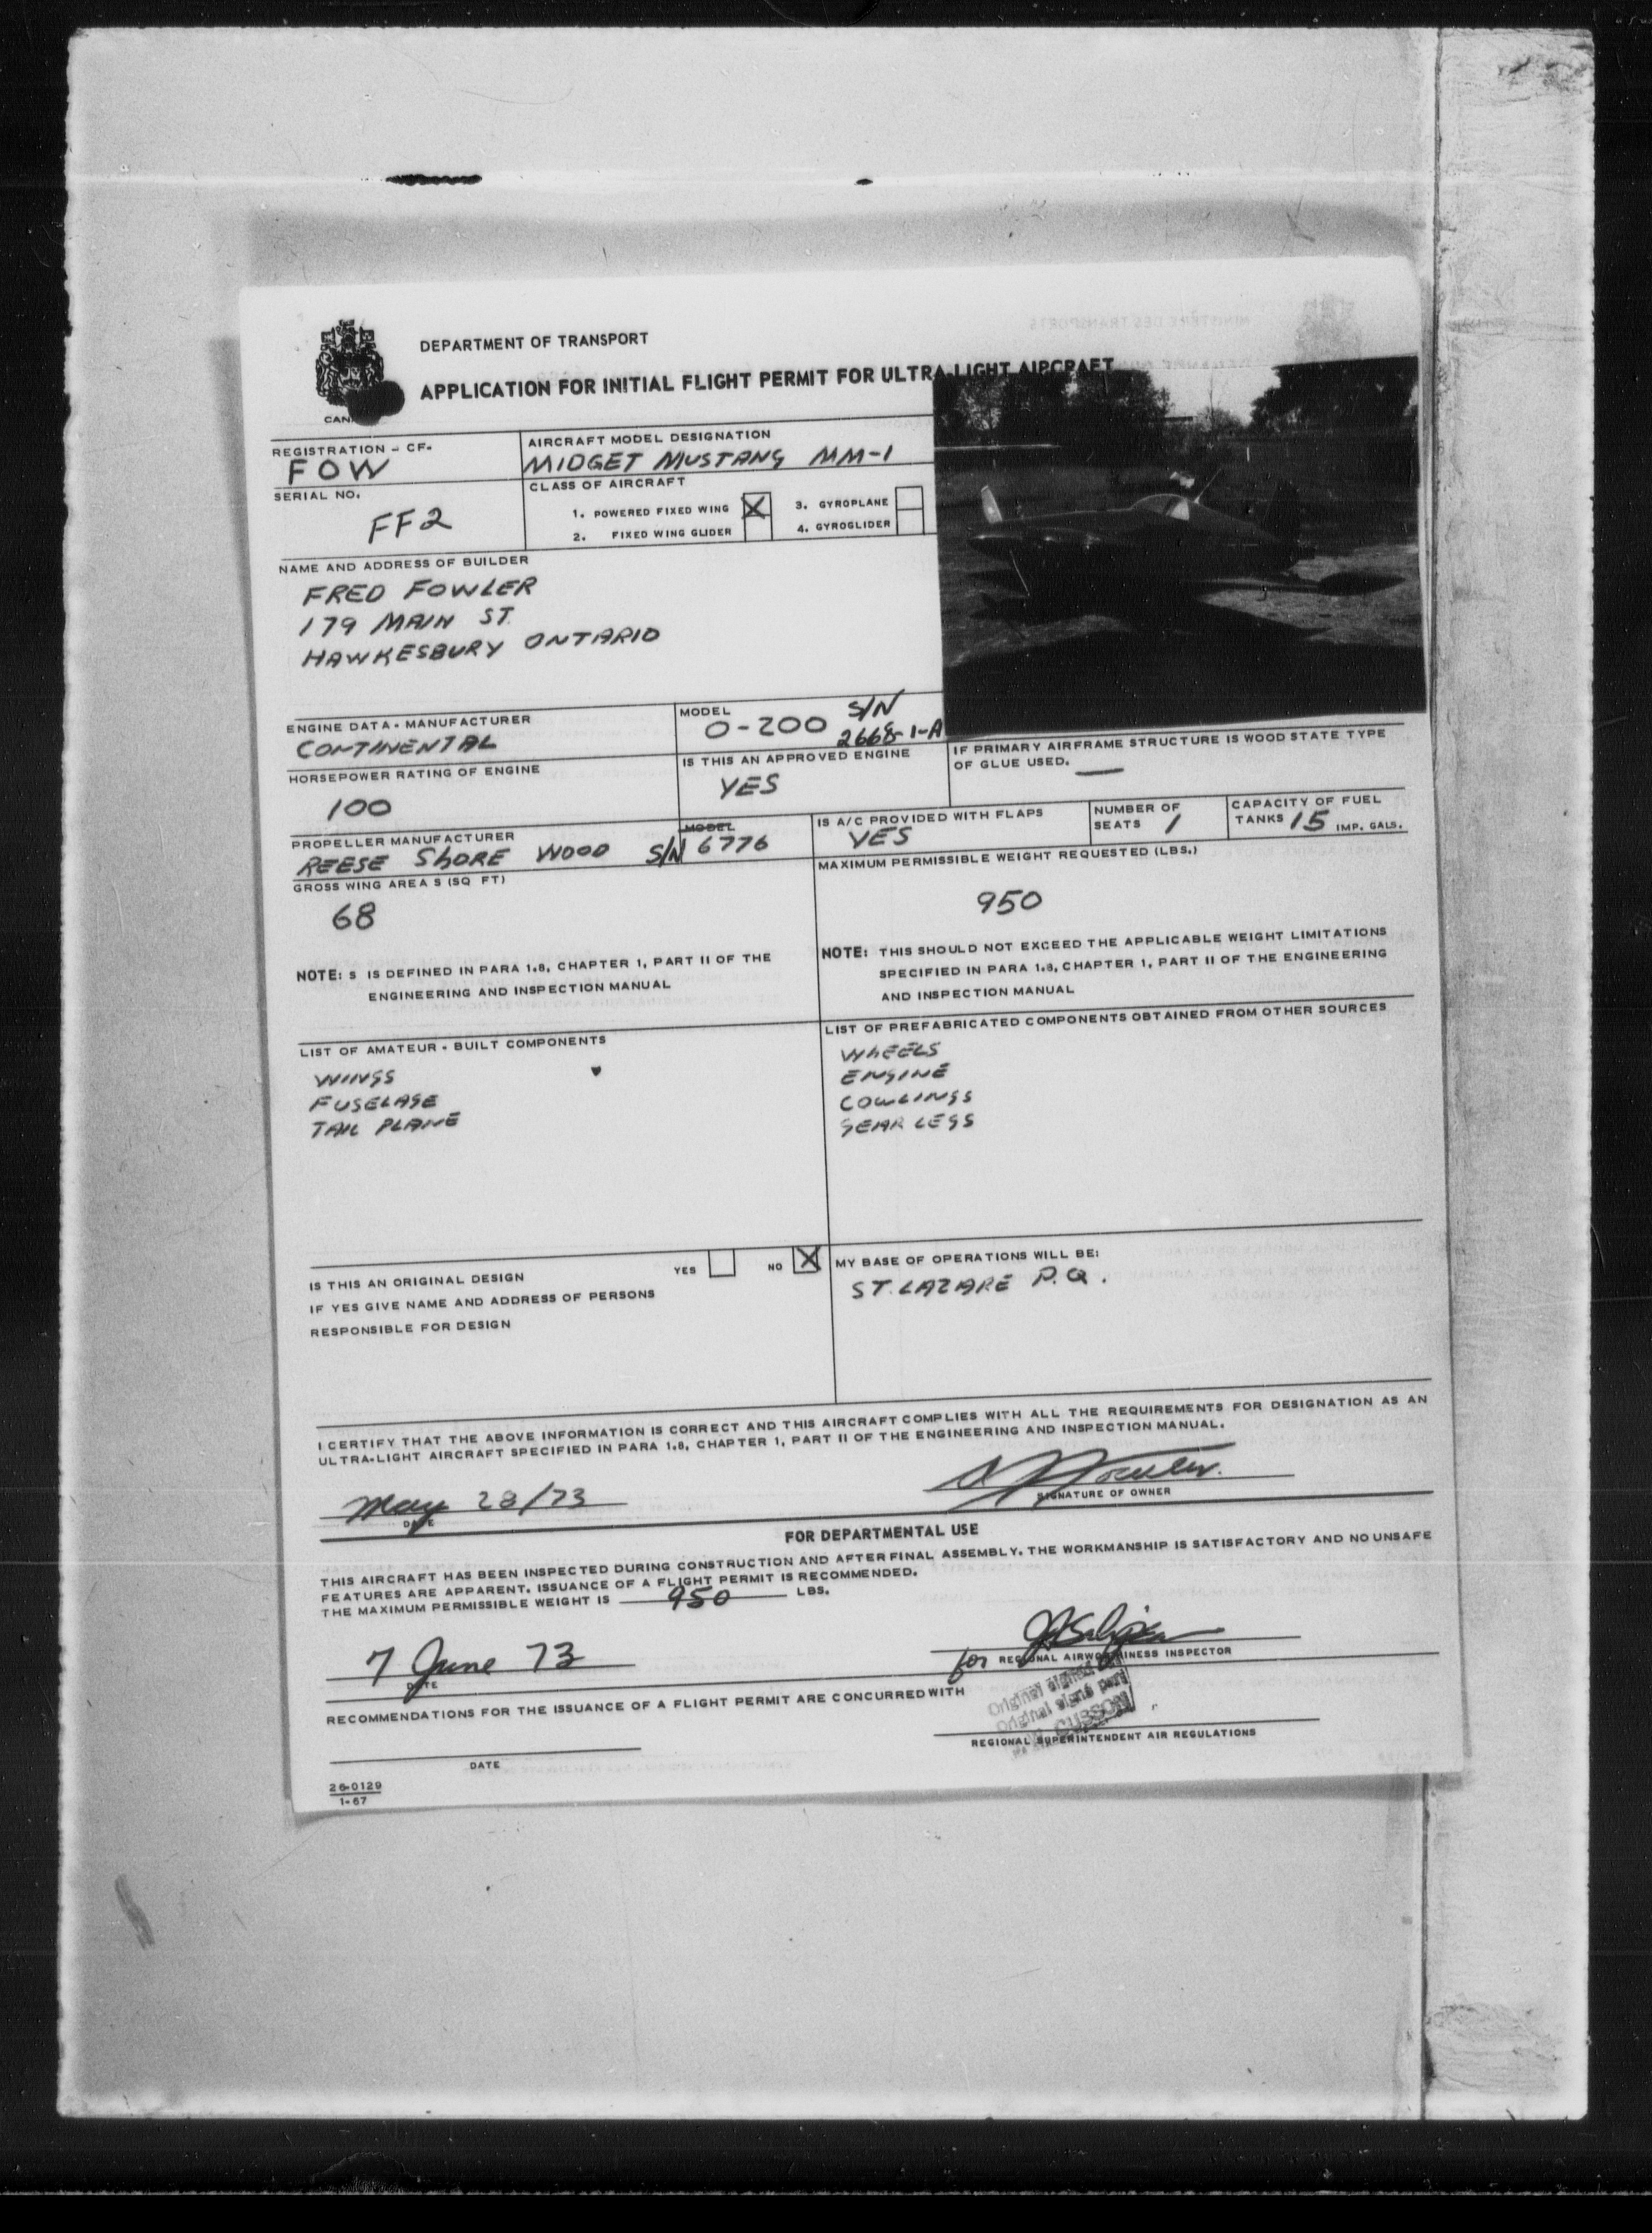 DEPARTMENT OF TRANSPORT
APPLICATION FOR INITIAL FLIGHT PERMIT FOR ULTRA-LIGHT AIRCRAFT
REGISTRATION - CF-
FOW
AIRCRAFT MODEL DESIGNATION
MIDGET MUSTANG MM-1
SERIAL NO.
FF2
CLASS OF AIRCRAFT
1. POWERED FIXED WING X 3. GYROPLANE
2. FIXED WING GLIDER 4. GYROGLIDER
NAME AND ADDRESS OF BUILDER
FRED FOWLER
179 MAIN ST.
HAWKESBURY ONTARIO
ENGINE DATA - MANUFACTURER
CONTINENTAL
MODEL
O-200 S/N
1-A
HORSEPOWER RATING OF ENGINE
100
IS THIS AN APPROVED ENGINE
YES
IF PRIMARY AIRFRAME STRUCTURE IS WOOD STATE TYPE
OF GLUE USED. —
PROPELLER MANUFACTURER
REESE SHORE WOOD S/N
MODEL
6776
IS A/C PROVIDED WITH FLAPS
YES
NUMBER OF
SEATS 1
CAPACITY OF FUEL
TANKS 15 IMP. GALS.
GROSS WING AREA S (SQ FT)
68
NOTE: S IS DEFINED IN PARA 1.8, CHAPTER 1, PART II OF THE
ENGINEERING AND INSPECTION MANUAL
MAXIMUM PERMISSIBLE WEIGHT REQUESTED (LBS.)
950
NOTE: THIS SHOULD NOT EXCEED THE APPLICABLE WEIGHT LIMITATIONS
SPECIFIED IN PARA 1.8, CHAPTER 1, PART II OF THE ENGINEERING
AND INSPECTION MANUAL
LIST OF AMATEUR - BUILT COMPONENTS
WINGS
FUSELAGE
TAIL PLANE
LIST OF PREFABRICATED COMPONENTS OBTAINED FROM OTHER SOURCES
WHEELS
ENGINE
COWLINGS
GEAR LEGS
IS THIS AN ORIGINAL DESIGN YES NO X
IF YES GIVE NAME AND ADDRESS OF PERSONS
RESPONSIBLE FOR DESIGN
MY BASE OF OPERATIONS WILL BE:
ST. LAZARE P.Q.
I CERTIFY THAT THE ABOVE INFORMATION IS CORRECT AND THIS AIRCRAFT COMPLIES WITH ALL THE REQUIREMENTS FOR DESIGNATION AS AN
ULTRA-LIGHT AIRCRAFT SPECIFIED IN PARA 1.8, CHAPTER 1, PART II OF THE ENGINEERING AND INSPECTION MANUAL.
May 28/73
DATE
SIGNATURE OF OWNER
FOR DEPARTMENTAL USE
THIS AIRCRAFT HAS BEEN INSPECTED DURING CONSTRUCTION AND AFTER FINAL ASSEMBLY. THE WORKMANSHIP IS SATISFACTORY AND NO UNSAFE
FEATURES ARE APPARENT. ISSUANCE OF A FLIGHT PERMIT IS RECOMMENDED.
THE MAXIMUM PERMISSIBLE WEIGHT IS 950 LBS.
7 June 73
DATE
for REGIONAL AIRWORTHINESS INSPECTOR
RECOMMENDATIONS FOR THE ISSUANCE OF A FLIGHT PERMIT ARE CONCURRED WITH
Original signed
Original signé par
CUSSON
DATE
REGIONAL SUPERINTENDENT AIR REGULATIONS
26-0129
1-67